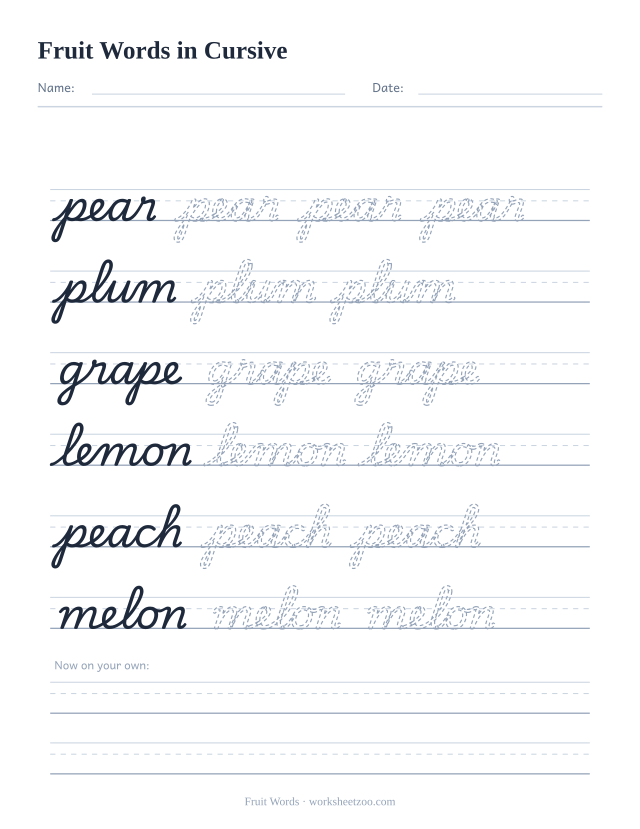 Fruit Words in Cursive
Name: Date:
pear pear pear pear
plum plum plum
grape grape grape
lemon lemon lemon
peach peach peach
melon melon melon
Now on your own:
Fruit Words · worksheetzoo.com